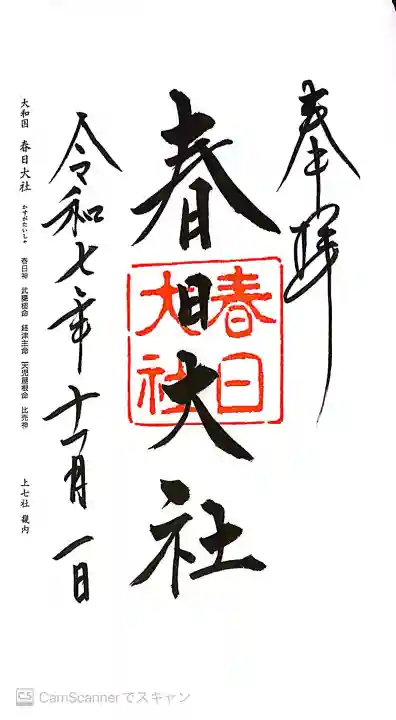 奉拝
春日大社
春日
大社
令和七年十一月一日
大和国 春日大社 かすがたいしゃ 春日神 武甕槌命 経津主命 天児屋根命 比売神 上七社 畿内
CS CamScannerでスキャン